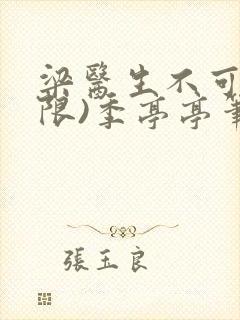 梁醫生不可
限)季亭亭筆
張玉良